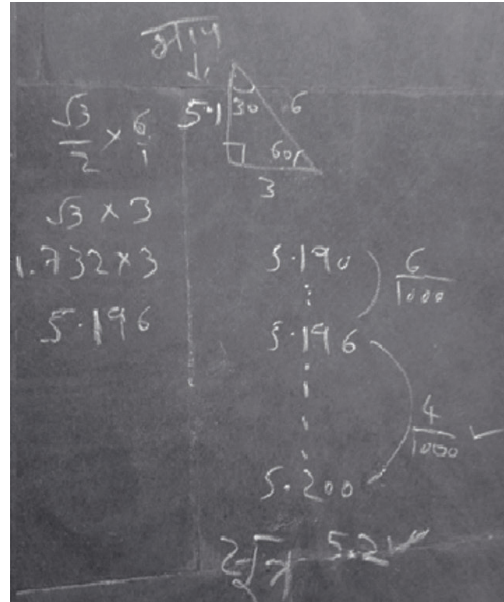 माप
↓
5.1 30 6
60
3
√3/2 × 6/1
√3 × 3
1.732×3
5.196
5.190
6/1000
5.196
4/1000 ✓
5.200
5.2